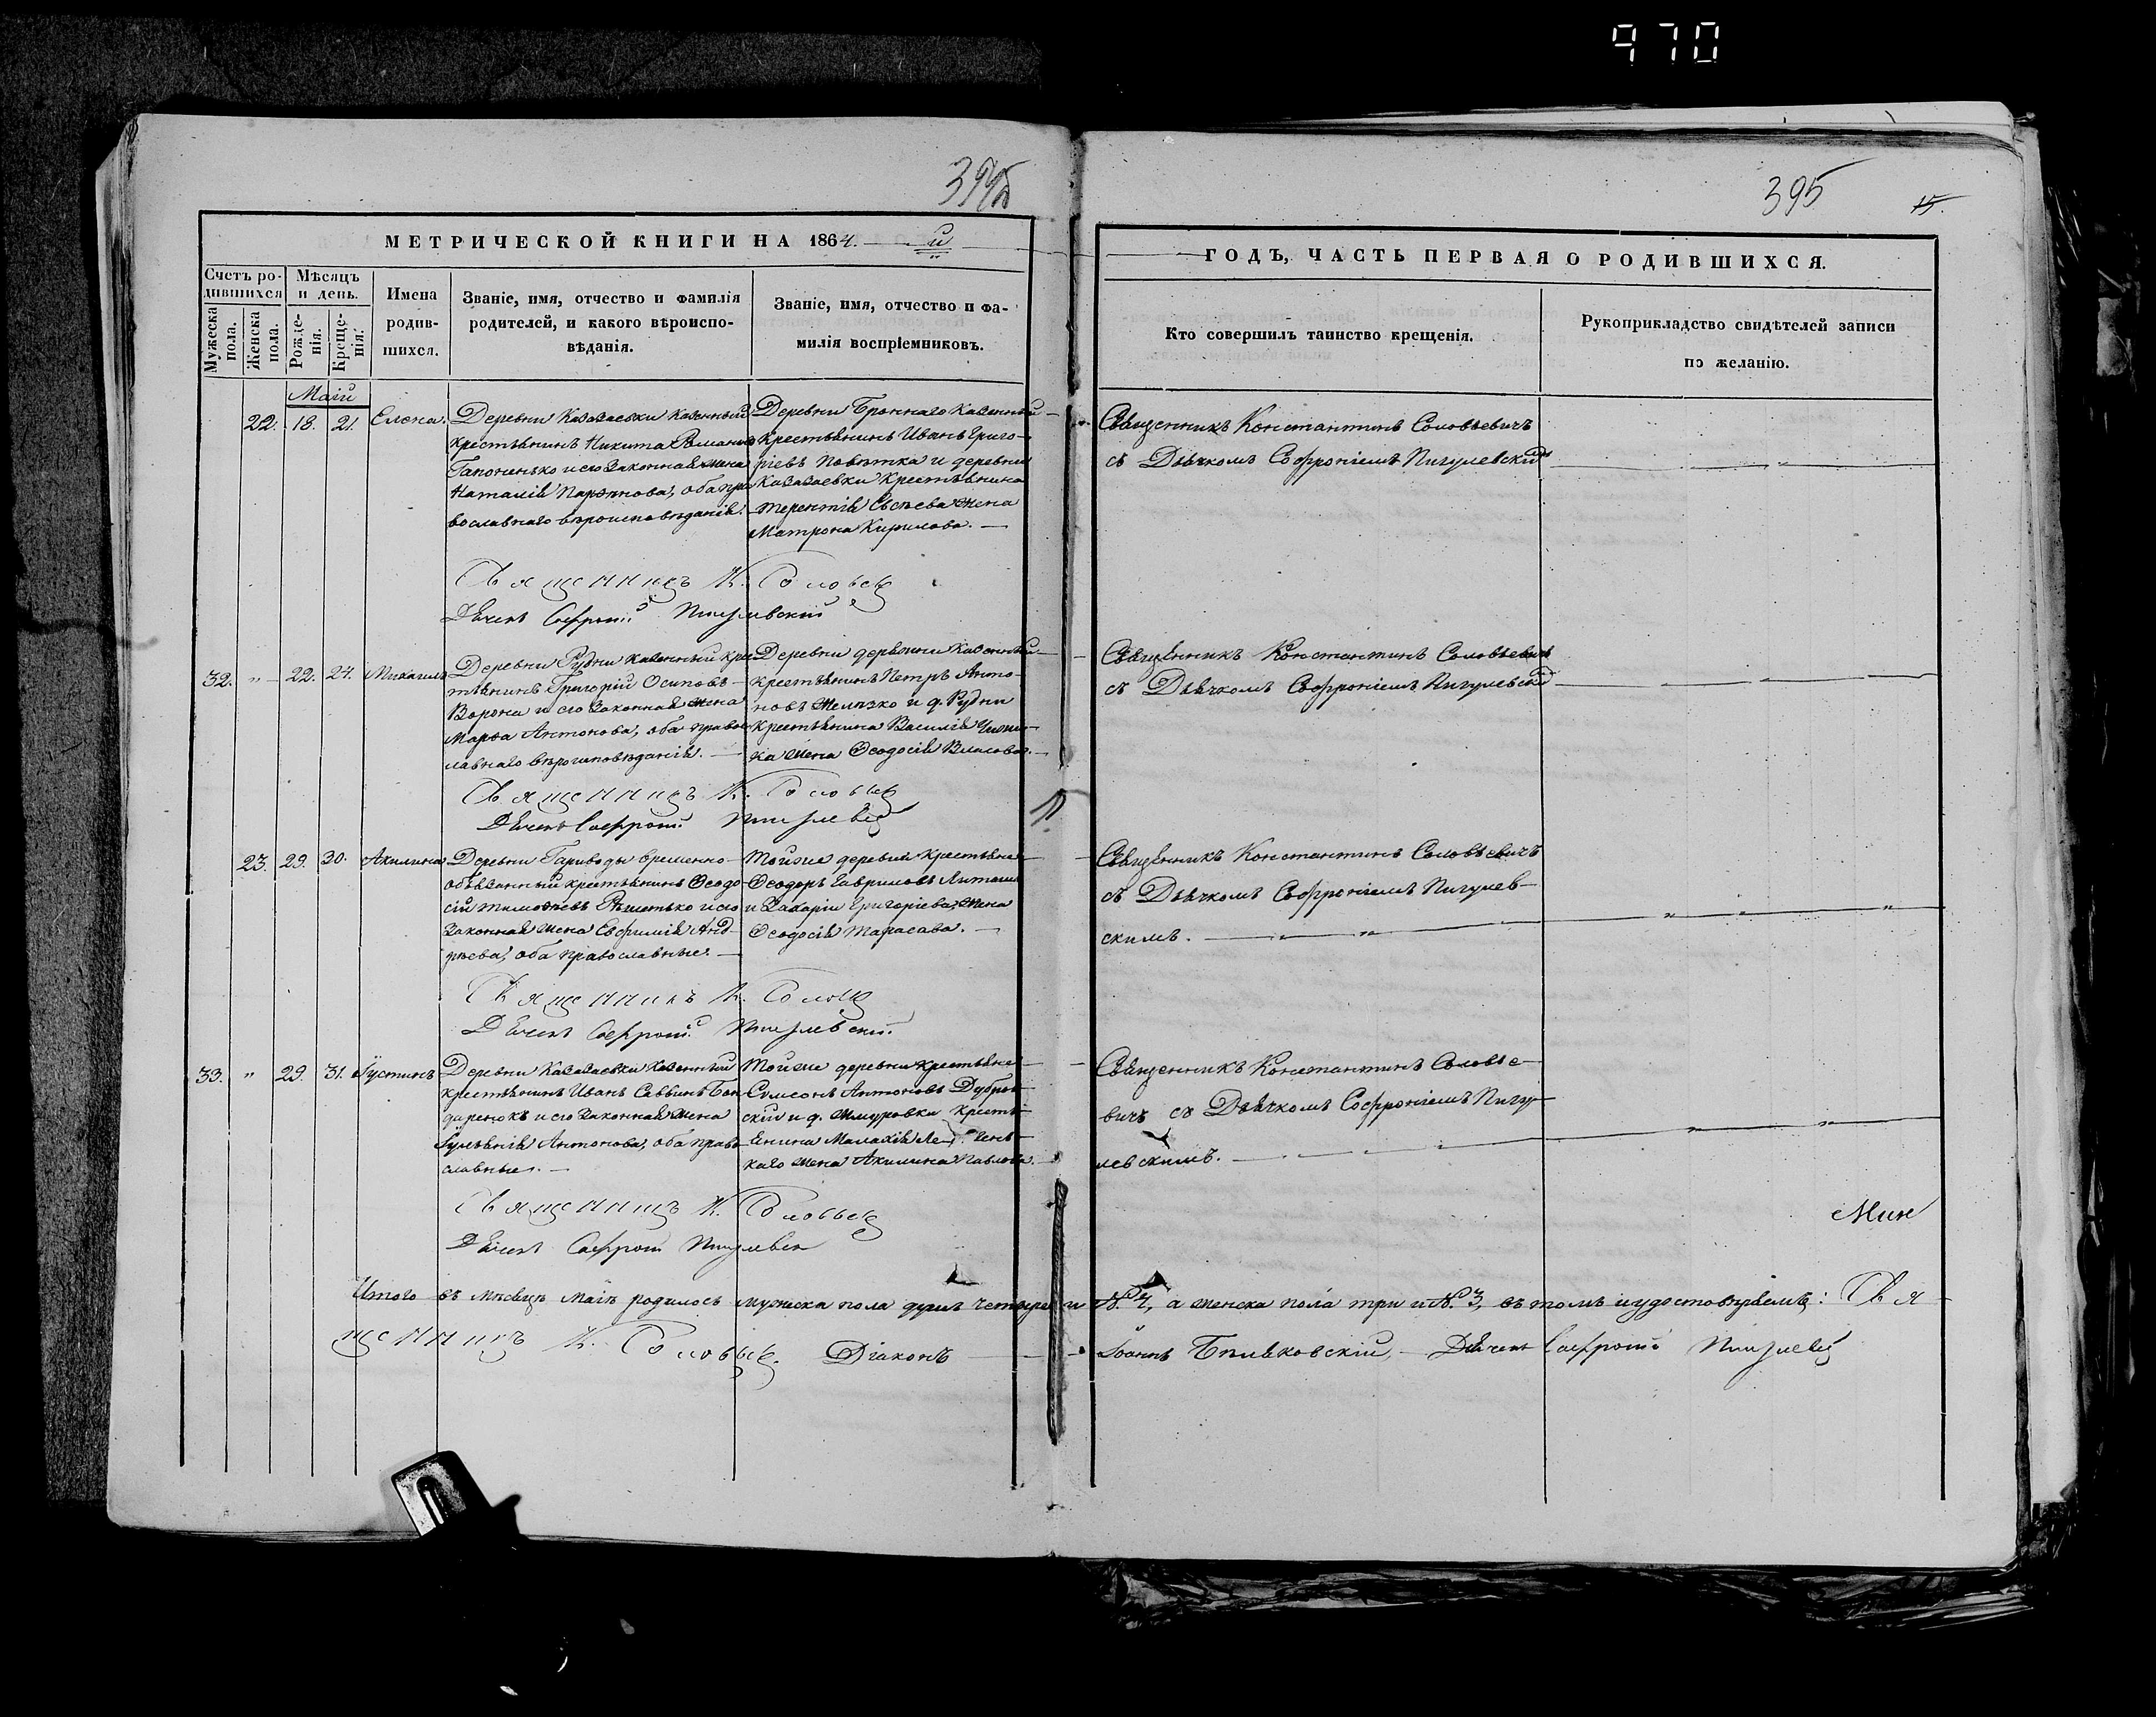 970
395
15.
МЕТРИЧЕСКОЙ КНИГИ НА 1864. й
ГОДЪ, ЧАСТЬ ПЕРВАЯ О РОДИВШИХСЯ.
Счетъ ро-
дившихся
Мужеска
пола.
Женска
пола.
Мѣсяцъ
и день.
Рожде-
нія.
Креще-
нія.
Имена
родив-
шихся.
Званіе, имя, отчество и фамилія
родителей, и какого вѣроиспо-
вѣданія.
Званіе, имя, отчество и фа-
милія воспріемниковъ.
Кто совершилъ таинство крещенія.
Рукоприкладство свидѣтелей записи
по желанію.
Маій
22. 18. 21. Елена.
Деревни Казазаевки казенный
крестьянинъ Никита Романовъ
Гапоненько и его законная жена
Наталія оба пра
вославнаго вѣроисповѣданія.
Деревни Броннаго казенный
крестьянинъ Иванъ Григо-
ріевъ Поветка и деревни
Казазаевки крестьянина
Терентія Евсѣева жена
Матрона Кирилова.
Священникъ Константинъ Соловьевичъ
съ Дьячкомъ Софроніемъ Пигулевскимъ
Священникъ К. Соловьев
Дьячекъ Софроній Пигулевскій
32. " 22. 24. Михаилъ
Деревни Рудни казенный кре
стьянинъ Григорій Осиповъ
Ворона и его законная жена
Марѳа Антонова, оба право
славнаго вѣроисповѣданія.
Деревни казенный
крестьянинъ Петръ Анто-
новъ и д. Рудни
крестьянина Василія
ка жена Ѳеодосія Власова.
Священникъ Константинъ Соловьевичъ
съ Дьячкомъ Софроніемъ Пигулевск
Священникъ К. Соловьев
Дьячекъ Софроній Пигулев
23. 29. 30. Акилина
Деревни Гариводы временно-
обязанный крестьянинъ Ѳеодо
сій Тимоѳеевъ и его
законная жена Евфимія Анд-
рѣева, оба православные.
Той же деревни крестьяне
Ѳеодоръ Гавриловъ
и Захарія Григоріева жена
Ѳеодосія Тарасова.
Священникъ Константинъ Соловьевичъ
съ Дьячкомъ Софроніемъ Пигулев-
скимъ.
Священникъ К. Соловьев
Дьячекъ Софроній Пигулевскій.
33. " 29. 31. Іустинъ
Деревни Казазаевки казенный
крестьянинъ Иванъ Саввинъ Бон
даренокъ и его законная жена
Іуліанія Антонова, оба право
славные.
Той же деревни крестьяне
Сумеонъ Антоновъ Дубров
скій и д. Жмуровки кресть
янина Малахія
каго жена Акилина Павлова.
Священникъ Константинъ Соловье-
вичъ съ Дьячкомъ Софроніемъ Пигу-
левскимъ.
Священникъ К. Соловьев
Дьячекъ Софроній Пигулевск
Итого въ мѣсяцѣ маіѣ родилось мужеска пола душъ четыре и №. 4, а женска пола три и №. 3, въ томъ и удостовѣряемъ: Свя-
щенникъ К. Соловьев. Діаконъ Іоаннъ Бѣлявковскій, Дьячекъ Софроній Пигулев